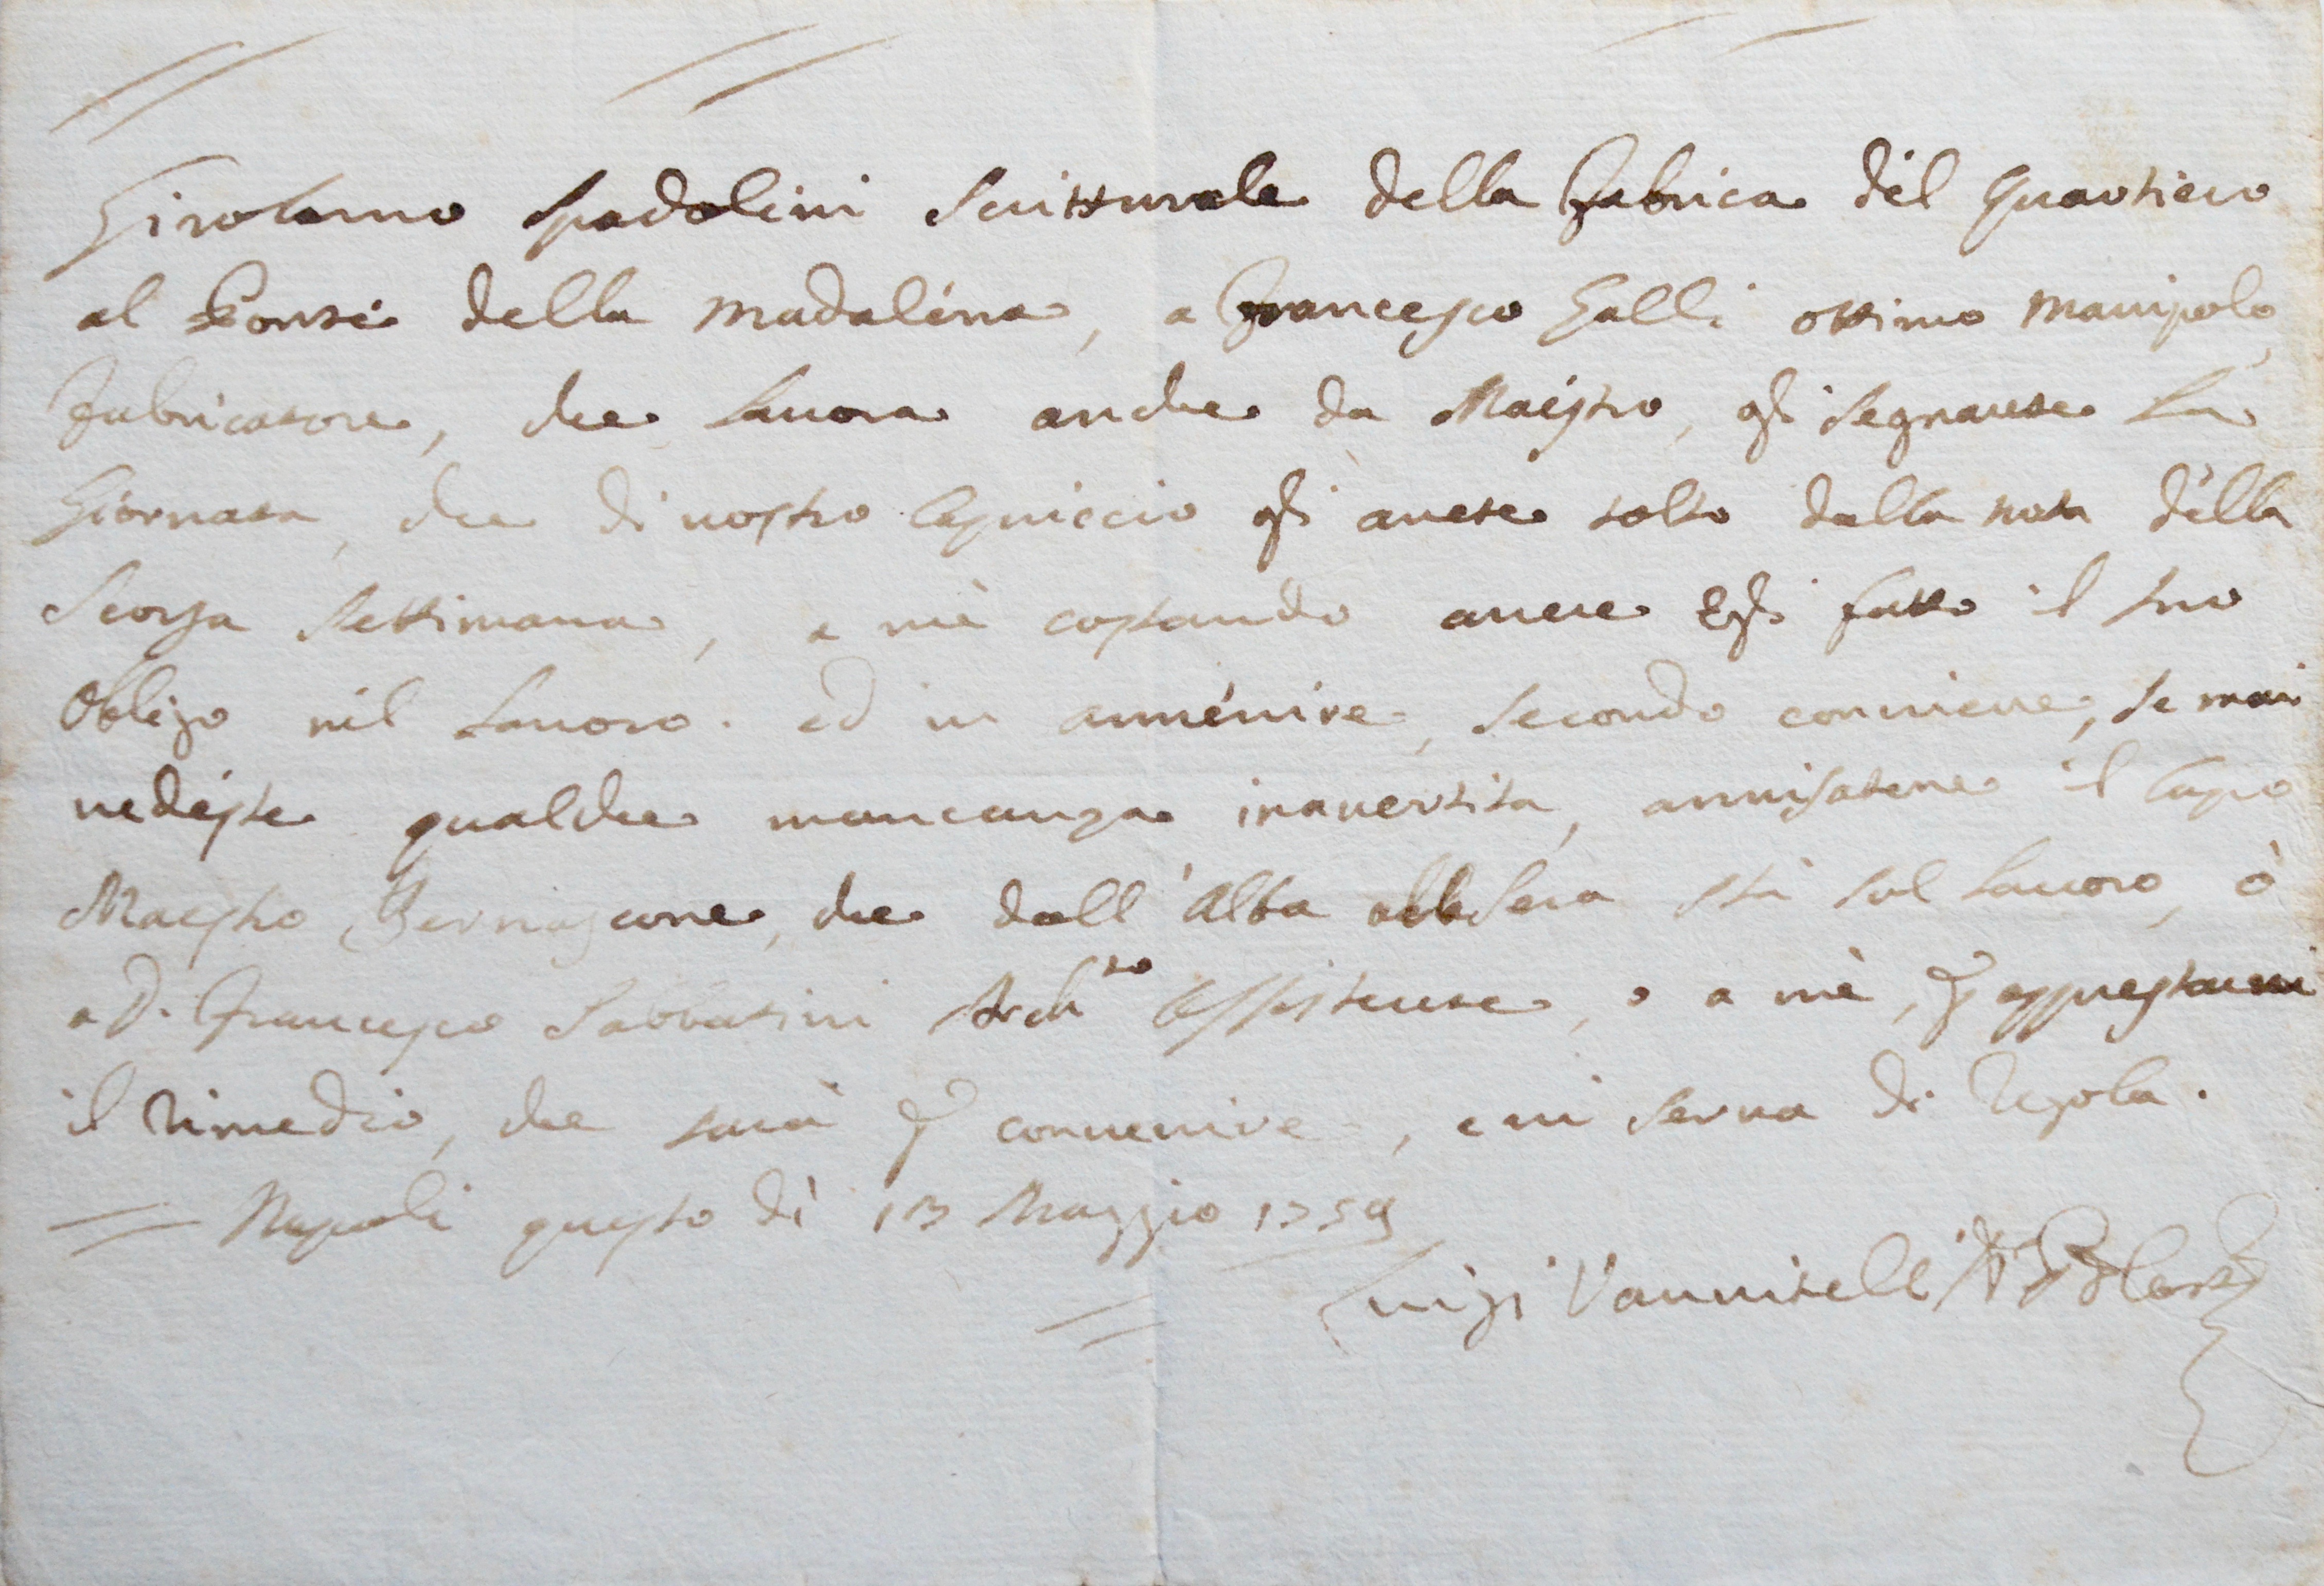 Girolamo Spadolini Scritturale della Fabrica del Quartiero
al Ponte della Madalena, a Francesco Galli ottimo Manipolo
Fabricatore, che lauora anche da Maestro, gli segnarete la
Giornata, che di uostro Capriccio gli auete tolto dalla nota della
Scorsa Settimana, a me costando auere Egli fatto il suo
obligo nel lauoro. ed in auuenire, secondo conuiene, se mai
uedeste qualche mancanza inauertita, auuisatene il Capo
Maestro Bernascone, che dall'Alba alla Sera stà sul lauoro, ò
a D. Francesco Sabbatini Archto Assistente, o a mè, per apprestarui
il rimedio, che sarà per conuenire, e ui serua di regola.
Napoli questo dì 13 Maggio 1759
Luigi Vanuitelli